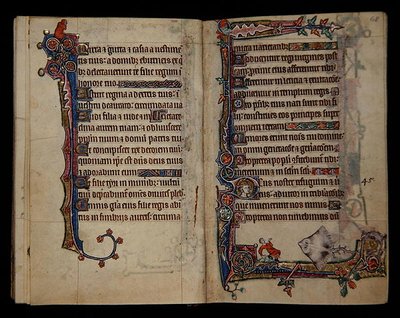 et gutta et casia a vestime
tis tuis a domib; eburneis ex
te filie regum i
honore tuo
stitit regina a dextris tuis i
vestitu deaurato: circumdata va
Audi filia & vide &
aurem tuam & obliviscere
populum tuum & domū patris tui
Et concupiscet rex decorem
quoniam ipse est dn̄s deus tuus
& adorabunt eum
Et filie tyri in munerib; vultū
tuū deprecabuntur oēs divites plebis
Omnis gloria eius filie regis ab i
tus in fimbriis aureis: circum a
68
varietatib;
Adducentur regi virgines post
eam: proxime eius afferentur tibi
Afferentur in leticia & exultatōe:
adducentur in templum regis
Pro patribus tuis nati sunt tibi
filii: constitues eos principes super
omnem terram
Memores erunt nominis tui
in omni generatione & generatōem
Propterea populi confitebuntur tibi
45.
Deus noster refugium & vir
tus: adiutor in tribulatōib;
que invenerunt nos nimis
Propterea non timebimus dū